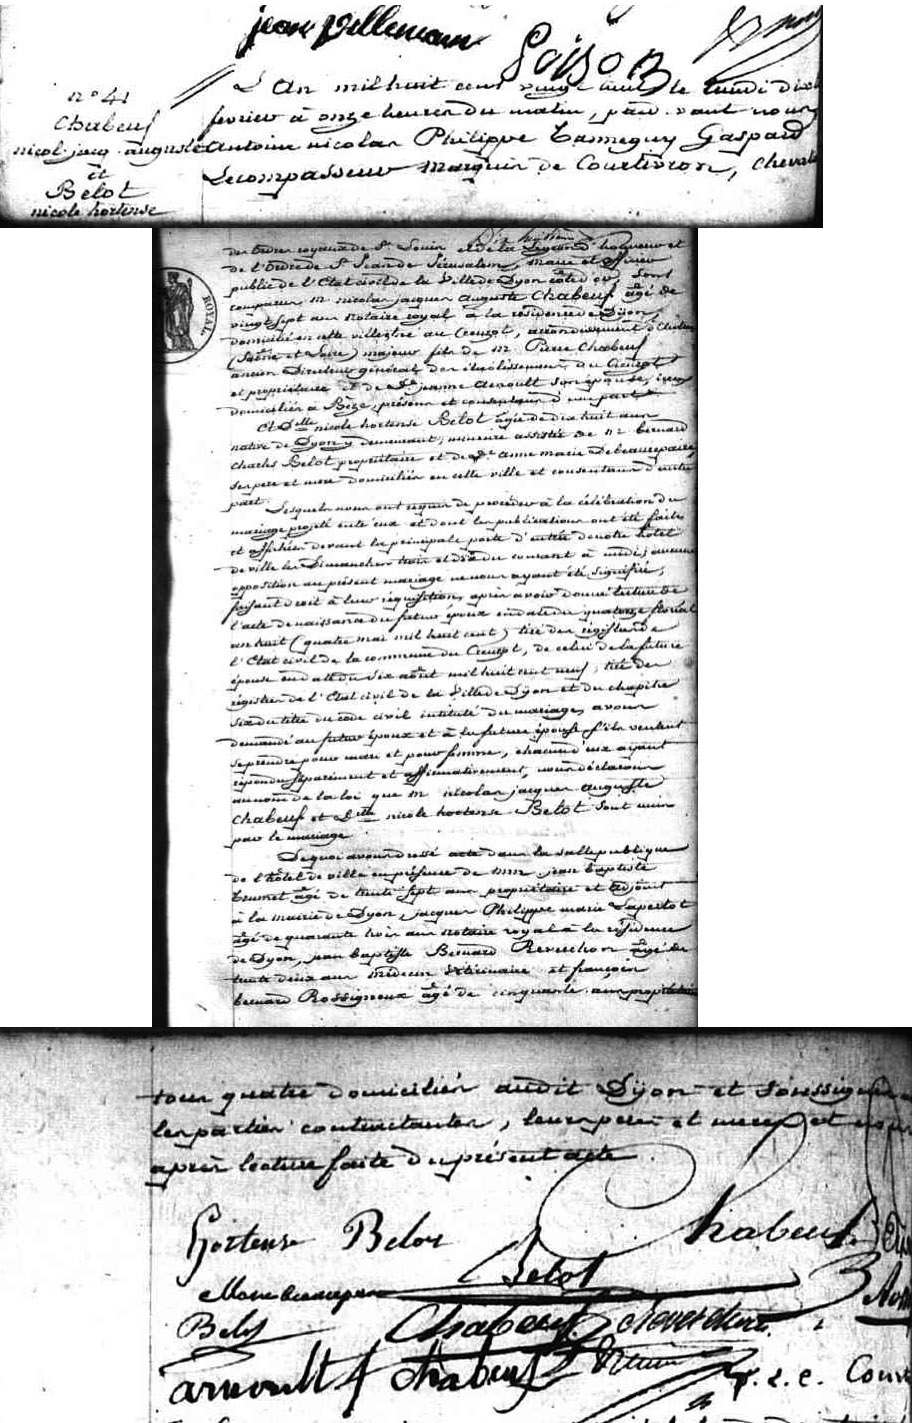 jean villemain
Loison
n° 41
Chabeuf
nicol. jacq. auguste
et
Belot
nicole hortense
L'An mil huit cent vingt huit le lundi dix
fevrier à onze heures du matin, par devant nous
Antoine nicolas Philippe Tanneguy Gaspard
Lecompasseur Marquis de Courtivron, cheval
Dix huitième
des ordres royaux de St Louis et de la Légion d'honneur et
de l'ordre de St Jean de Jérusalem, maire et officier
public de l'Etat civil de la Ville de Dijon côte d'or, sont
comparus mr nicolas jacques auguste Chabeuf âgé de
vingt sept ans notaire royal à la résidence de Dijon,
domicilié en cette ville, né au Creuzot, arrondissement d'Autun
(Saône et Loire) majeur fils de mr Pierre Chabeuf
ancien Directeur général des établissements du Creuzot
et propriétaire et de De jeanne Arnoult son épouse, iceux
domiciliés à Bèze, présens et consentans d'une part
Et Delle nicole hortense Belot âgée de dix huit ans
native de Dijon y demeurant, mineure assistée de mr bernard
charles Belot propriétaire et de De anne marie Debeaurepaire
ses pere et mere domiciliés en cette ville et consentans d'autre
part.
Lesquels nous ont requis de procéder à la célébration du
mariage projetté entr'eux et dont les publications ont été faites
et affichées devant la principale porte d'entrée de notre hôtel
de ville les Dimanches trois et dix du courant à midi; aucune
opposition au présent mariage ne nous ayant été signifiée,
faisant droit à leur réquisition, après avoir donné lecture de
l'acte de naissance du futur époux en date du quatorze floréal
an huit (quatre mai mil huit cent) tiré des registres de
l'Etat civil de la commune du Creuzot, de celui de la future
épouse en date du six août mil huit cent neuf, tiré des
registres de l'Etat civil de la Ville de Dijon et du chapitre
six du titre du code civil intitulé du mariage, avons
demandé au futur époux et à la future épouse s'ils veulent
se prendre pour mari et pour femme, chacun d'eux ayant
répondu séparément et affirmativement, nous déclarons
au nom de la loi que mr nicolas jacques auguste
Chabeuf et Delle nicole hortense Belot sont unis
par le mariage
De quoi avons dressé acte dans la salle publique
de l'hôtel de ville en présence de mm jean baptiste
Trumet âgé de trente sept ans propriétaire et adjoint
à la mairie de Dijon, jacques Philippe marie Lapertot
âgé de quarante trois ans notaire royal à la résidence
de Dijon, jean baptiste Bernard Reverchon âgé de
trente deux ans médecin vétérinaire et françois
bernard Rossigneux âgé de cinquante ans propriétaire
tous quatre domiciliés audit Dijon et soussignés
les parties contractantes, leurs peres et meres et nous
après lecture faite du présent acte
Hortense Belot Chabeuf
Belot
Marie beaurepaire
Belot Chabeuf Reverchon
arnoult f chabeuf